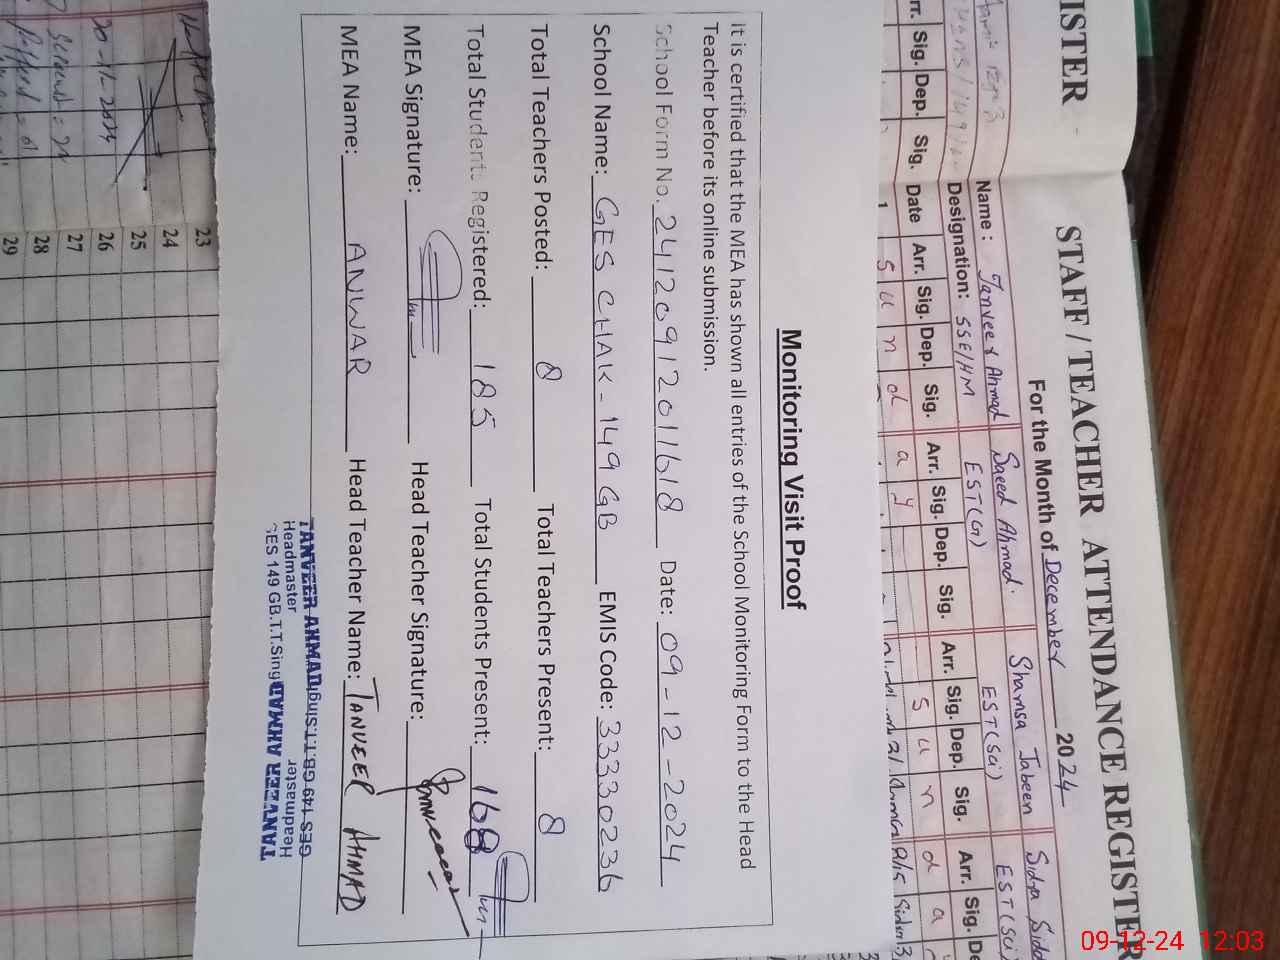 Monitoring Visit Proof
It is certified that the MEA has shown all entries of the School Monitoring Form to the Head
Teacher before its online submission.
School Form No. 24120912011618 Date: 09-12-2024
School Name: GES CHAK-149 GB EMIS Code: 33330236
Total Teachers Posted: 8 Total Teachers Present: 8
Total Students Registered: 185 Total Students Present: 168
MEA Signature: Head Teacher Signature:
MEA Name: ANWAR Head Teacher Name: TANVEER AHMAD
TANVEER AHMAD
Headmaster
GES 149 GB.T.T.Sing
TANVEER AHMAD
Headmaster
GES 149 GB
ISTER
STAFF / TEACHER ATTENDANCE REGISTER
For the Month of December 2024
Name: Tanveer Ahmad Saeed Ahmad. Shamsa Jabeen Sidra
Designation: SSE/HM EST(G) EST(Sci) EST(Sci)
Arr. Sig. Dep. Sig. Date Arr. Sig. Dep. Sig. Arr. Sig. Dep. Sig. Arr. Sig. Dep. Sig. Arr. Sig. De
1 S u n d a y S u n d a
20-11-2024
23
24
25
26
27
28
29
09-12-24 12:03